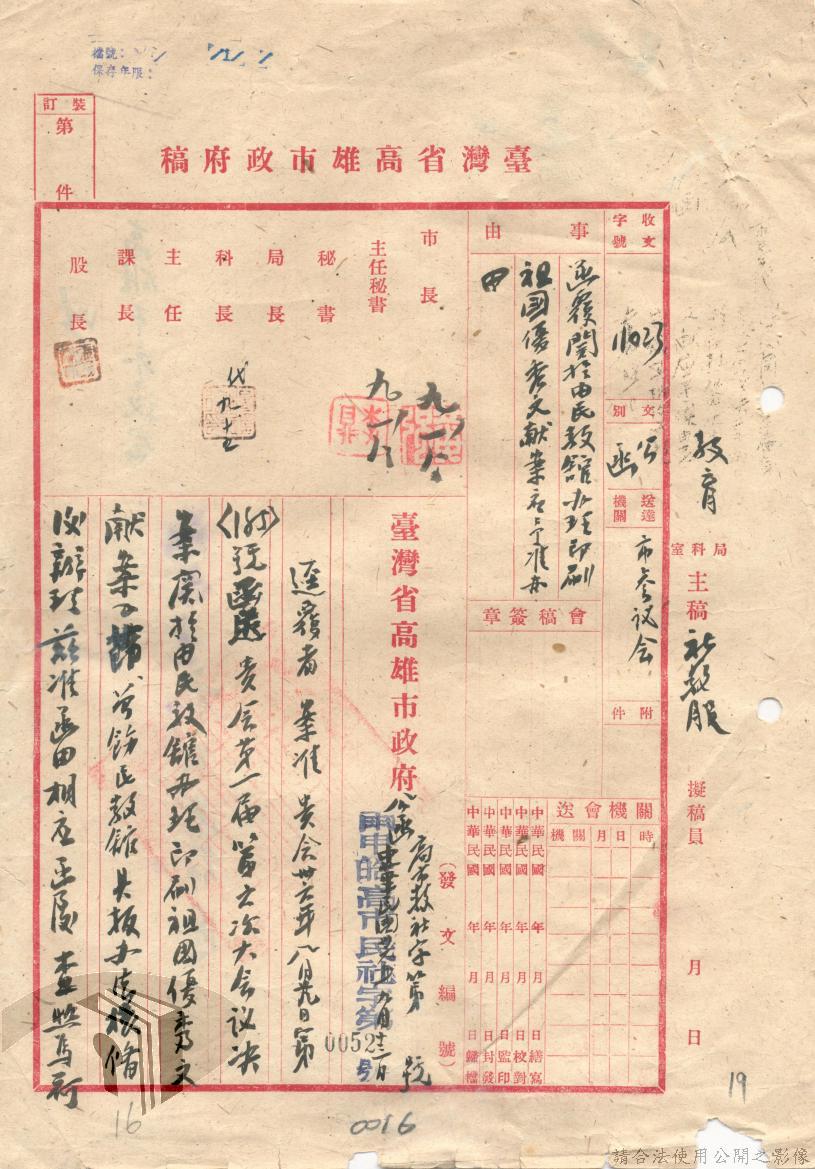 檔號：
保存年限：
裝訂
第 件
臺灣省高雄市政府稿
教育
局科室
主稿
社教股
擬稿員
月 日
收文字號
文別
公函
送達機關
市參议会
附件
事由
函覆関於由民教館办理印刷
祖國優秀文献案应予准办
由
會稿簽章
關機會送
時
日
月
關機
中華民國 年 月 日繕寫
中華民國 年 月 日校對
中華民國 年 月 日監印
中華民國 年 月 日封發
中華民國 年 月 日歸檔
市長
主任秘書
秘書
局長
科長
主任
課長
股長
九、一八
代
臺灣省高雄市政府
公函
（發文編號）
高市教社字第 號
0052
逕覆者 案准 貴会卅六年八月 日第
号函送 貴会第一届第六次大会议决
案関於由民教館办理印刷祖國優秀文
献案 飭民教館具报办法核備
後辦理 茲准函由相应函復 查照為荷
16
0016
19
請合法使用公開之影像